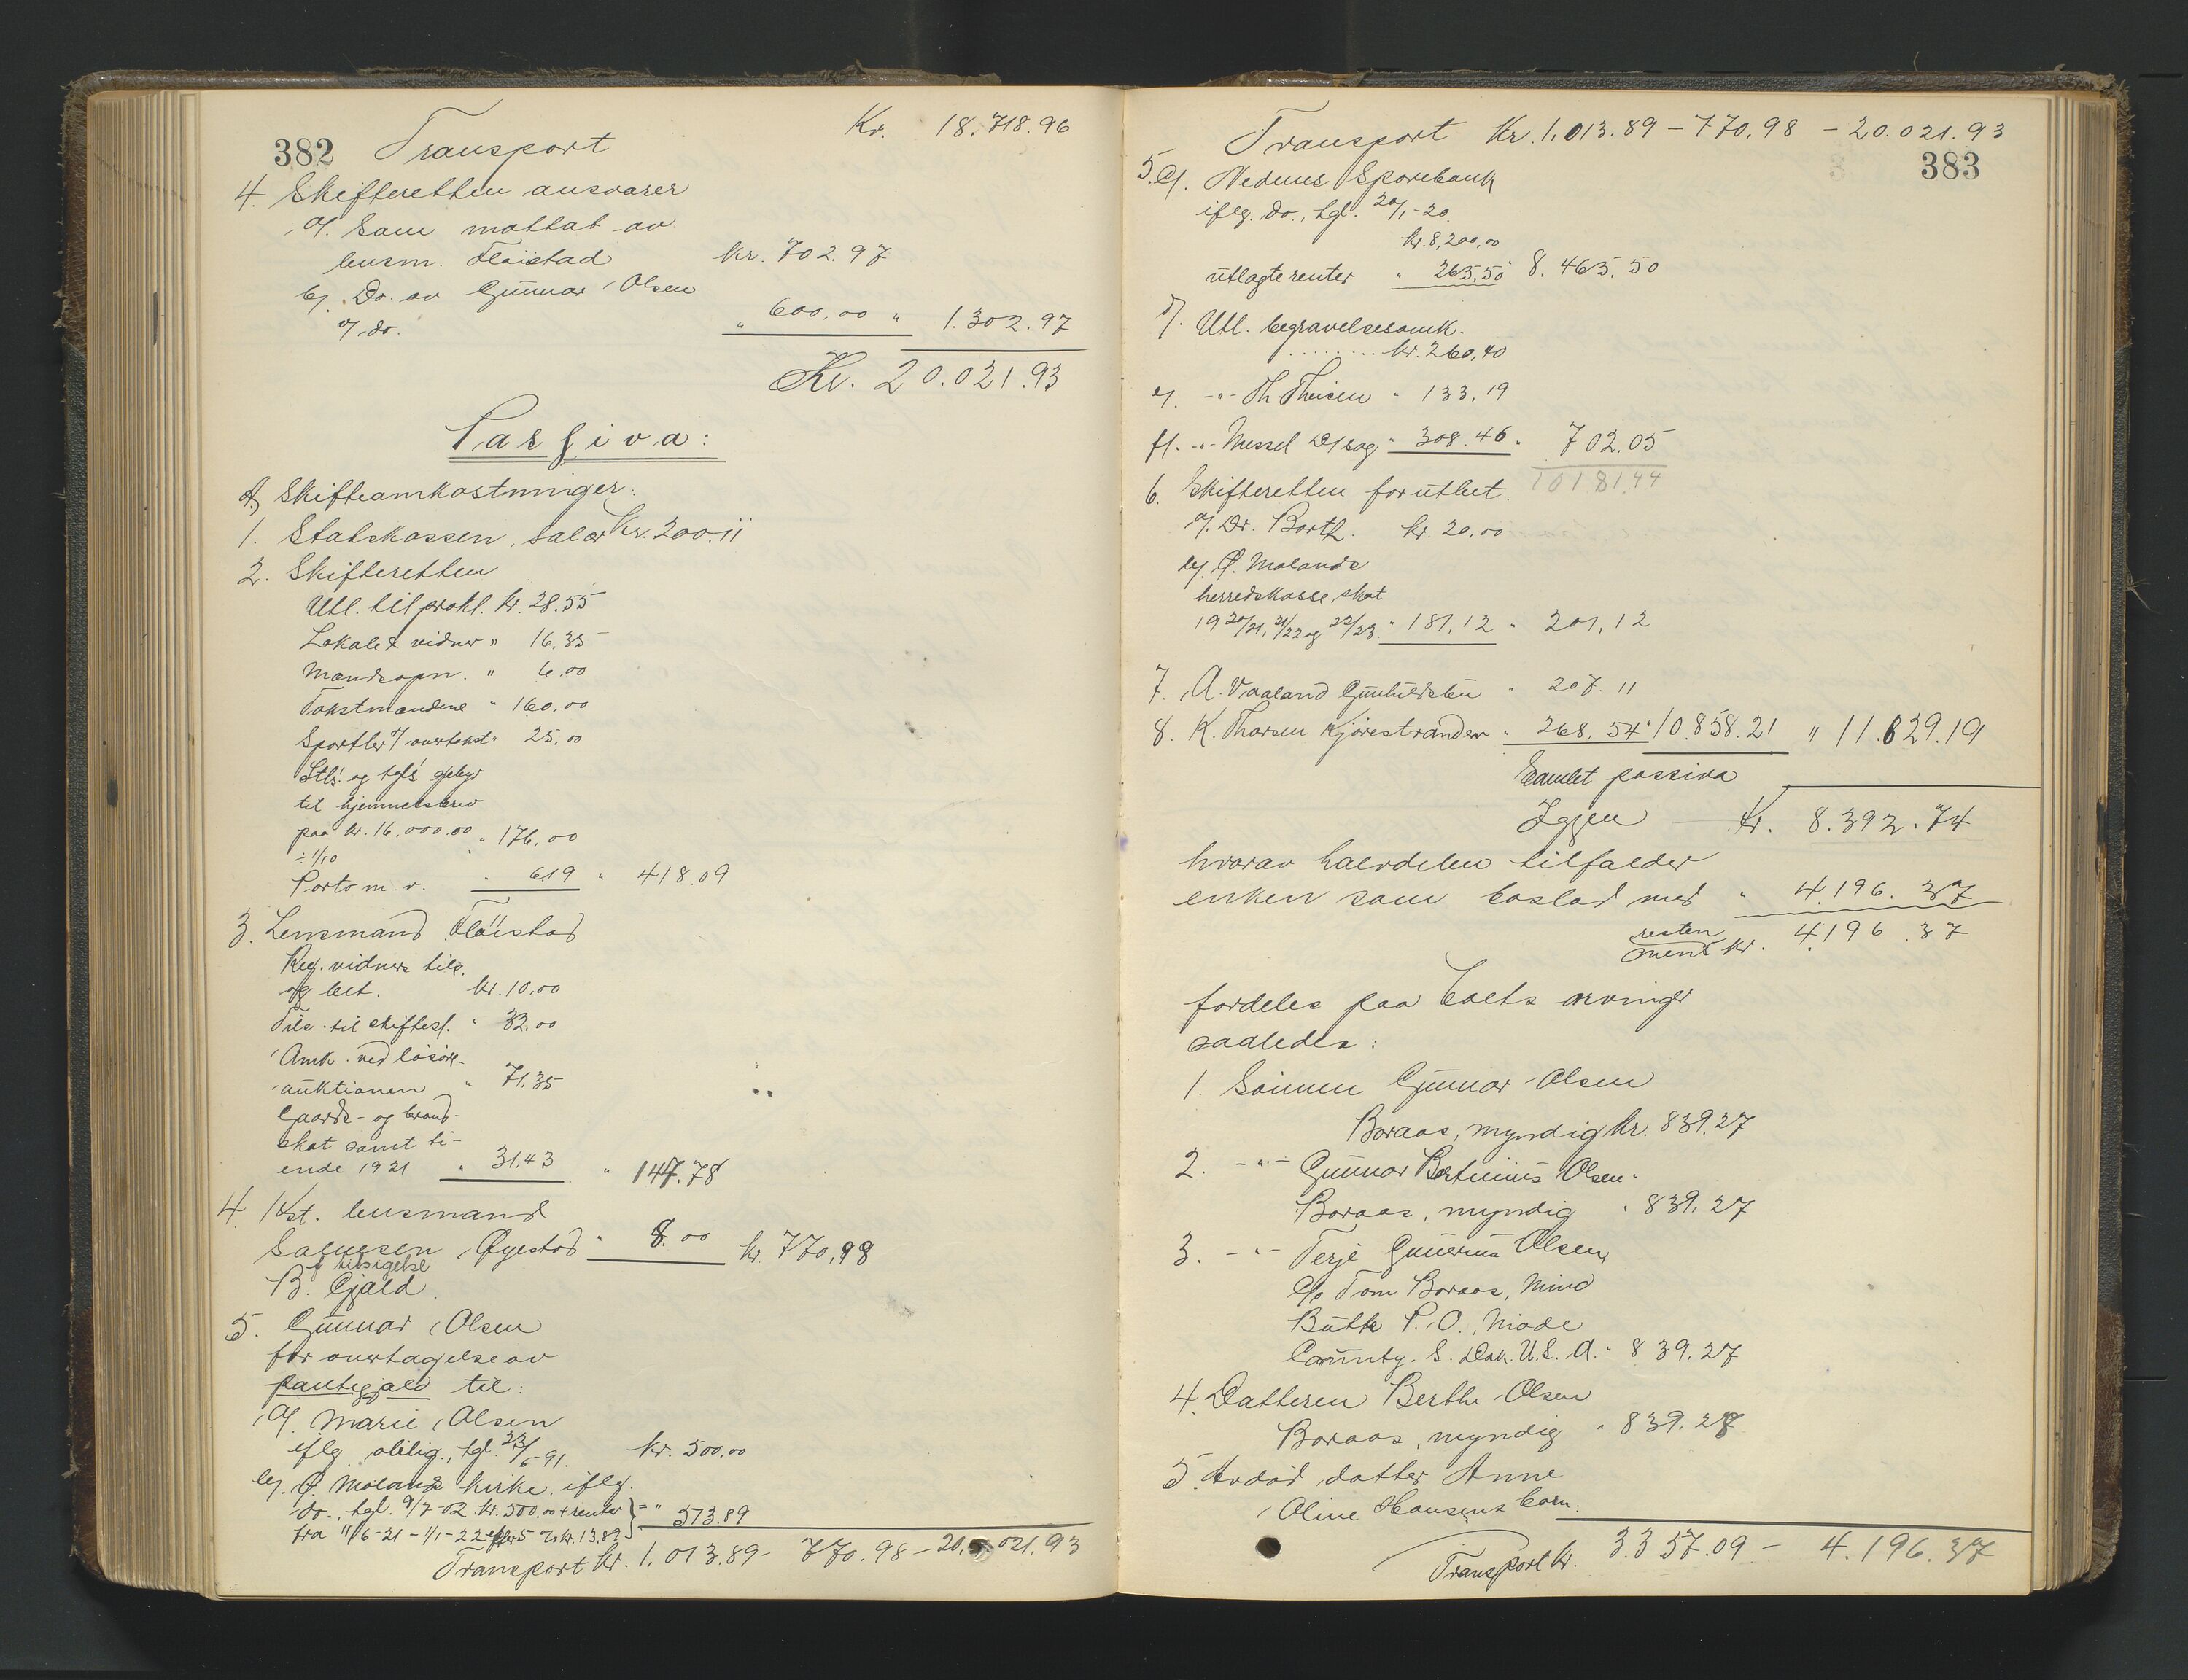 382 Transport Kr. 18.718.96
4. Skifteretten ansvarer
a/. Som mottat av
lensm. Fløistad kr. 702.97
b/. Do. av Gunnar Olsen
a/ do. " 600.00 " 1.302.97
Kr. 20.021.93
Passiva:
A) Skifteomkostninger:
1. Statskassen, salær Kr. 200.11
2. Skifteretten
Utl. til prokl. kr. 28.55
Lokale & vidner " 16.35
Mandsopn. " 6.00
Takstmændene " 160.00
Sportler a/ overtakst " 25.00
Stls. og tgls. gebyr
til hjemmelsbrev
paa kr. 16.000.00 " 176.00
÷ 1/10
Porto m. v. " 6.19 " 418.09
3. Lensmand Fløistad
Reg. vidners tils.
og best. kr. 10.00
Tils. til skiftesl. " 32.00
Omk. ved løsøre-
auktionen " 71.35
Gaards- og brand-
skat samt ti-
ende 1921 " 31.43 " 147.78
4. Kst. lensmand
Salvesen, Øyestad " 8.00 kr. 770,98
f. tilsigelse
B. Gjæld.
5. Gunnar Olsen
for overtagelse av
pantegjæld til:
a/. Marie Olsen
iflg. oblig., tgl. 23/6-91. kr. 500.00
b/. Ø. Molands kirke iflg.
do., tgl. 9/7-02 kr. 500.00 + renter
fra 11/6-21 - 1/1-22 efter 5 % kr. 13.89 } = " 513.89
Transport kr. 1.013.89 - 770.98 - 20.021.93
Transport Kr. 1.013.89 - 770.98 - 20.021.93
383
5. c/. Nedenes Sparebank
iflg. do., tgl. 20/1-20.
kr. 8,200,00
utlagte renter " 263,50 8.463.50
d/. Utl. begravelsesomk.
........ kr. 260,40
e/. -"- Th Theisen " 133.19
f/. -"- Messel D/sag " 308.46 " 702.05
10181.44
6. Skifteretten for utbet.
a/. Dr. Barth. kr. 20,00
b/. Ø. Molands
herredskasse, skat
19 20/21, 21/22 og 22/23. " 181.12 " 201,12
7. A. Vaaland Gunhildsbu " 207.11
8. K. Thorsen Kjørestranden " 268.54 " 10.858.21 " 11.629.19
Samlet passiva
Igjen Kr. 8.392.74
hvorav halvdelen tilfalder
enken som boslod med " 4.196.37
resten
mens kr. 4.196.37
fordeles paa boets arvinger
saaledes:
1. Sønnen Gunnar Olsen
Boraas, myndig kr. 839.27
2. -"- Gunnar Bertinius Olsen
Boraas, myndig " 839.27
3. -"- Terje Gunerius Olsen,
c/o Tom Boraas, Mind
Butte P. O., Made
County. S. Dak. U.S.A. " 839.27
4. Datteren Berthe Olsen
Boraas, myndig " 839.28
5. Avdød datter Anne
Oline Hansens barn:
Transport kr. 3.357.09 - 4.196.37